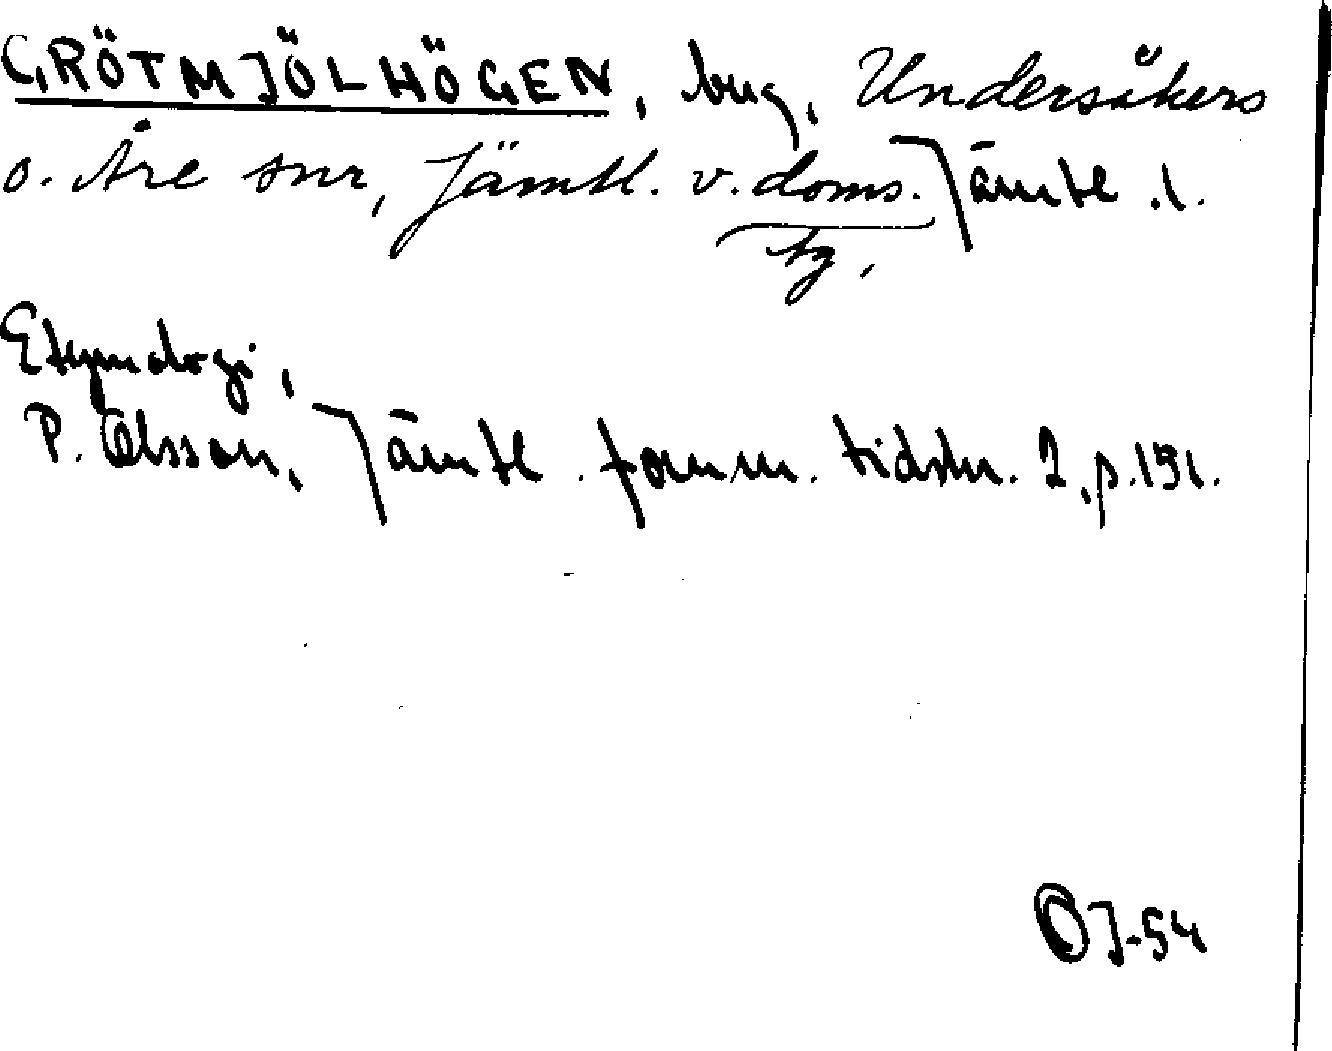 GRÖTMJÖLHÖGEN, bug, Undersåkers
o. Åre snr, Jämtl. v. doms. Jämtl. l.
tg.
Etymologi,
P. Olsson, Jämtl. fornm. tidskr. 2, p. 151.
OJ-54